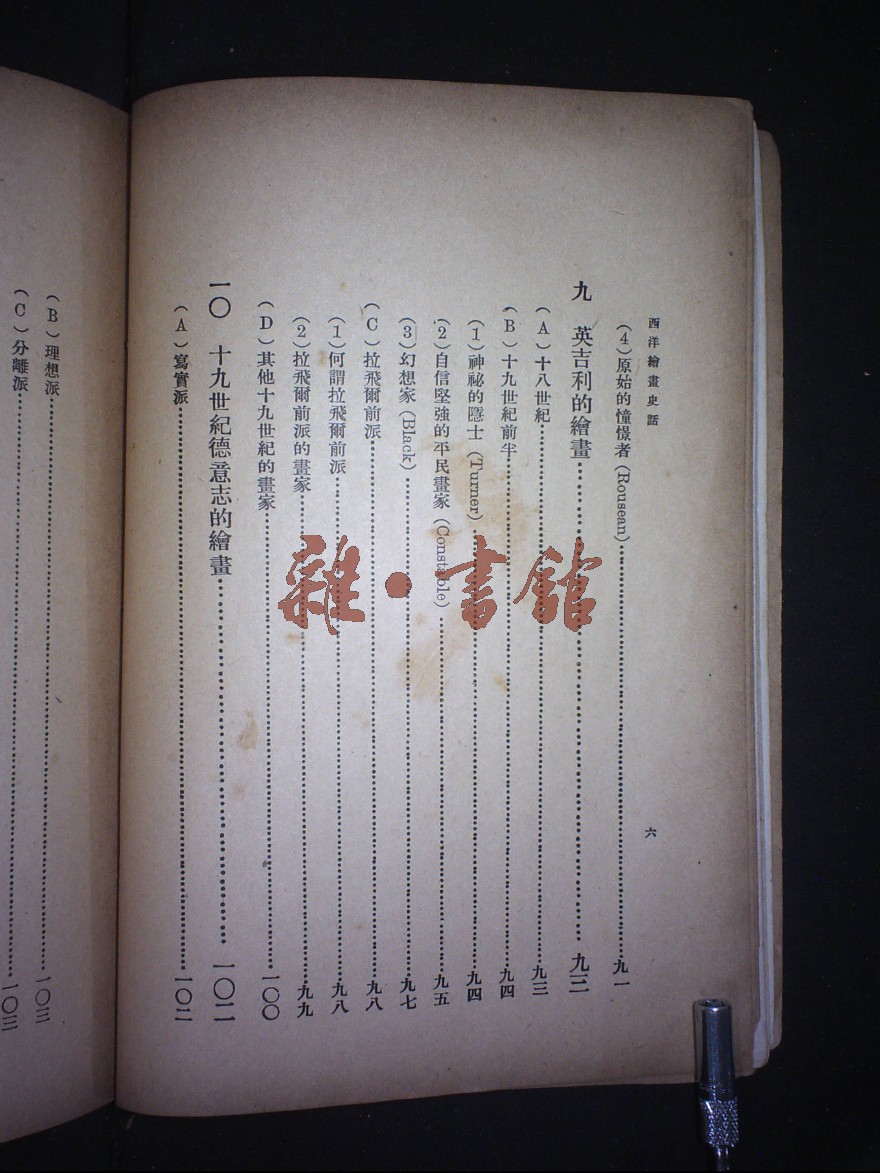 西洋繪畫史話
六
(4)原始的憧憬者(Rousean)……九一
九 英吉利的繪畫……九二
(A)十八世紀……九三
(B)十九世紀前半……九四
(1)神祕的隱士(Turner)……九四
(2)自信堅強的平民畫家(Constable)……九五
(3)幻想家(Black)……九七
(C)拉飛爾前派……九八
(1)何謂拉飛爾前派……九八
(2)拉飛爾前派的畫家……九九
(D)其他十九世紀的畫家……一〇〇
一〇 十九世紀德意志的繪畫……一〇二
(A)寫實派……一〇二
(B)理想派……一〇三
(C)分離派……一〇三
雜·書館